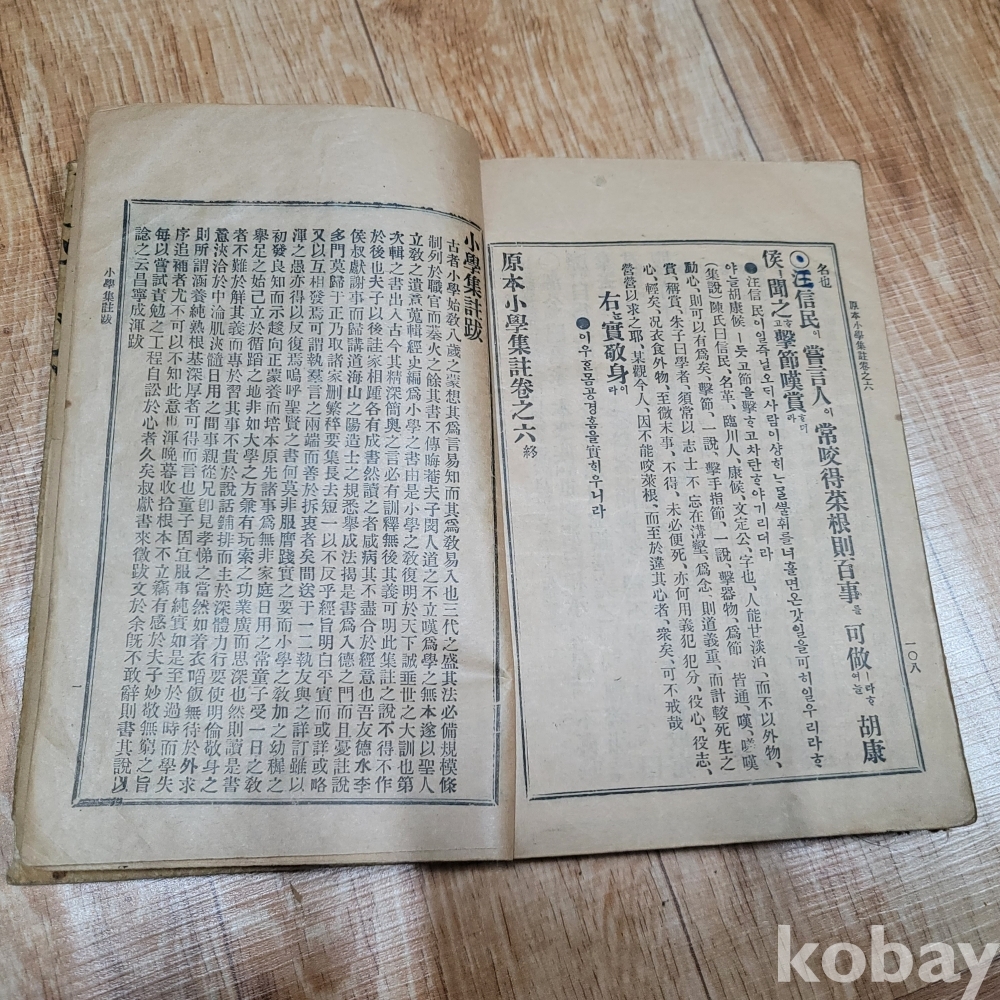 原本小學集註卷之六
一〇八
名也
汪信民이 嘗言人이 常咬得菜根則百事를 可做ㅣ라ᄒᆞ야ᄂᆞᆯ 胡康
侯ㅣ聞之ᄒᆞ고 擊節嘆賞ᄒᆞ더라
汪信民이일즉닐오ᄃᆡ사람이샹히ᄂᆞ믈ᄲᅮᆯ휘를너흘면온갓일을可히일우리라ᄒᆞ
야ᄂᆞᆯ胡康候ㅣ듯고節을擊ᄒᆞ고차탄ᄒᆞ야기리더라
(集說)陳氏曰信民、名革、臨川人、康候、文定公、字也、人能甘淡泊、而不以外物、
動心、則可以有爲矣、擊節、一說、擊手指節、一說、擊器物、爲節 皆通、嘆、嗟嘆
賞、稱賞、朱子曰學者、須常以志士不忘在溝壑、爲念、則道義重、而計較死生之
心、輕矣、况衣食外物、至微末事、不得、未必便死、亦何用義犯犯分、役心、役志、
營營以求之耶、某觀今人、因不能咬菜根、而至於違其心者、衆矣、可不戒哉
右ᄂᆞᆫ實敬身이라
이우흔몸공경홈을實히우니라
原本小學集註卷之六 終
小學集註跋
古者小學始敎八歲之蒙想其爲言易知而其爲敎易入也三代之盛其法必備規模條
制列於職官而秦火之餘其書不傳晦菴夫子閔人道之不立嘆爲學之無本遂以聖人
立敎之遺意蒐輯經史編爲小學之書由是小學之敎復明於天下誠垂世之大訓也第
次輯之書出入古今其精深簡奧之言必有訓釋無後其義可明此集註之說不得不作
於後也夫子以後註家相踵各有成書然讀之者咸病其不盡合於經意也吾友德水李
侯叔獻謝事而歸講道海山之陽造士之規悉擧成法揭是書爲入德之門而且憂註說
多門莫歸于正乃取諸家刪繁稡要集長去短一以不反乎經旨明白平實而或詳或略
又以互相發焉可謂執羣言之兩端而善於折衷者矣間送于一二執友與之詳訂雖以
渾之愚亦得以反復焉嗚呼聖賢之書何莫非服膺踐實之要而小學之敎加之幼穉之
初發良知而示趨向正蒙養而培本原先諸事爲無非家庭日用之常童子受一日之敎
擧足之始已立於循蹈之地非如大學之方兼有玩索之功業廣而思深也然則讀是書
者不難於鮮其義而專於習其事不貴於說話鋪排而主於深體力行要使明倫敬身之
意浹洽於中淪肌浹髓日用之間事親從兄卽見孝悌之當然如着衣喫飯無待於外求
則所謂涵養純熟根基深厚者可得而言也童子固宜服事純實如是至於過時而學失
序追補者尤不可以不知此意也渾晩暮收拾根本不立竊有感於夫子妙敬無窮之旨
每以嘗試責勉之工程自訟於心者久矣叔獻書來徵跋文於余旣不敢辭則書其說以
諗之云昌寧成渾跋
小學集註跋
一
kobay